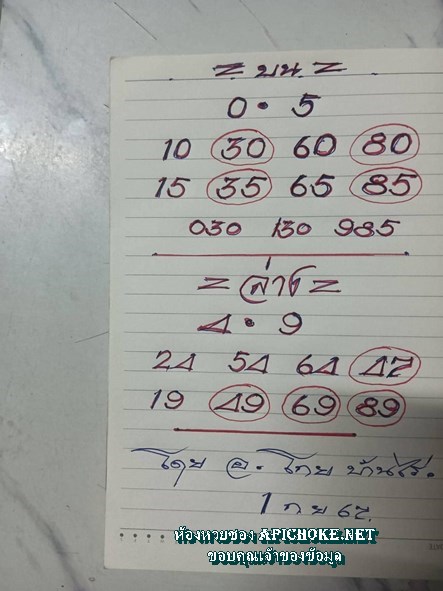 = บน =
0 • 5
10 30 60 80
15 35 65 85
030 130 985
= ล่าง =
4 • 9
24 54 64 47
19 49 69 89
โดย อ. โกย บ้านไร่.
1 ก ย 67.
ห้องหวยซอง APICHOKE.NET
ขอบคุณเจ้าของข้อมูล